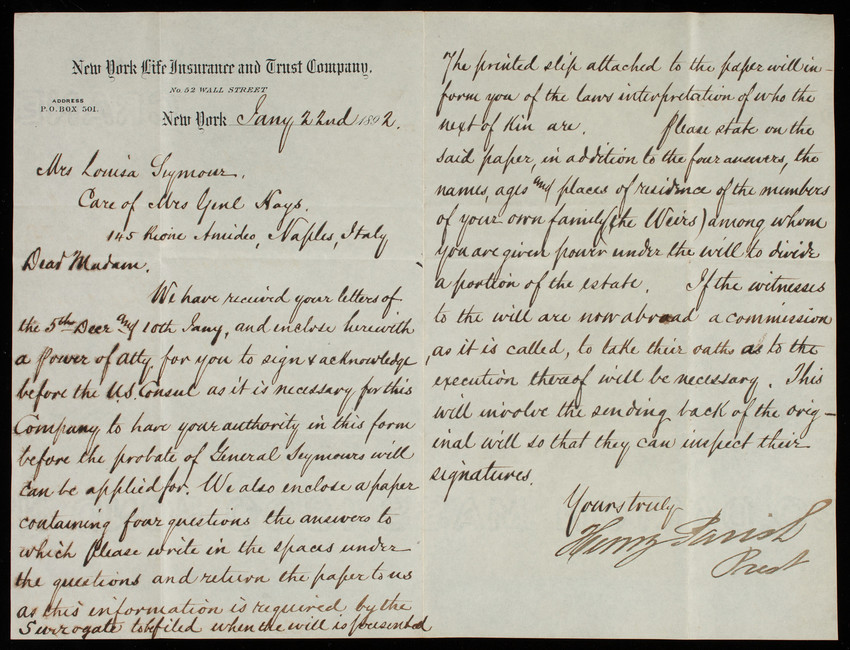 New York Life Insurance and Trust Company.
No. 52 WALL STREET
ADDRESS
P.O. BOX 501.
New York Jany 22nd 1892.
Mrs Louisa Seymour.
Care of Mrs Genl Hays.
145 Rione Amideo, Naples, Italy
Dear Madam.
We have received your letters of
the 5th Decr and 10th Jany, and enclose herewith
a Power of Atty for you to sign & acknowledge
before the U.S. Consul as it is necessary for this
Company to have your authority in this form
before the probate of General Seymours will
can be applied for. We also enclose a paper
containing four questions the answers to
which please write in the spaces under
the questions and return the paper to us
as this information is required by the
Surrogate to be filed when the will is presented
The printed slip attached to the paper will in-
form you of the laws interpretation of who the
next of Kin are. Please state on the
said paper, in addition to the four answers, the
names, ages and places of residence of the members
of your own family (the Weirs) among whom
you are given power under the will to divide
a portion of the estate. If the witnesses
to the will are now abroad a commission
, as it is called, to take their oaths as to the
execution thereof will be necessary. This
will involve the sending back of the orig-
inal will so that they can inspect their
signatures.
Yours truly
Henry Parish
Prest